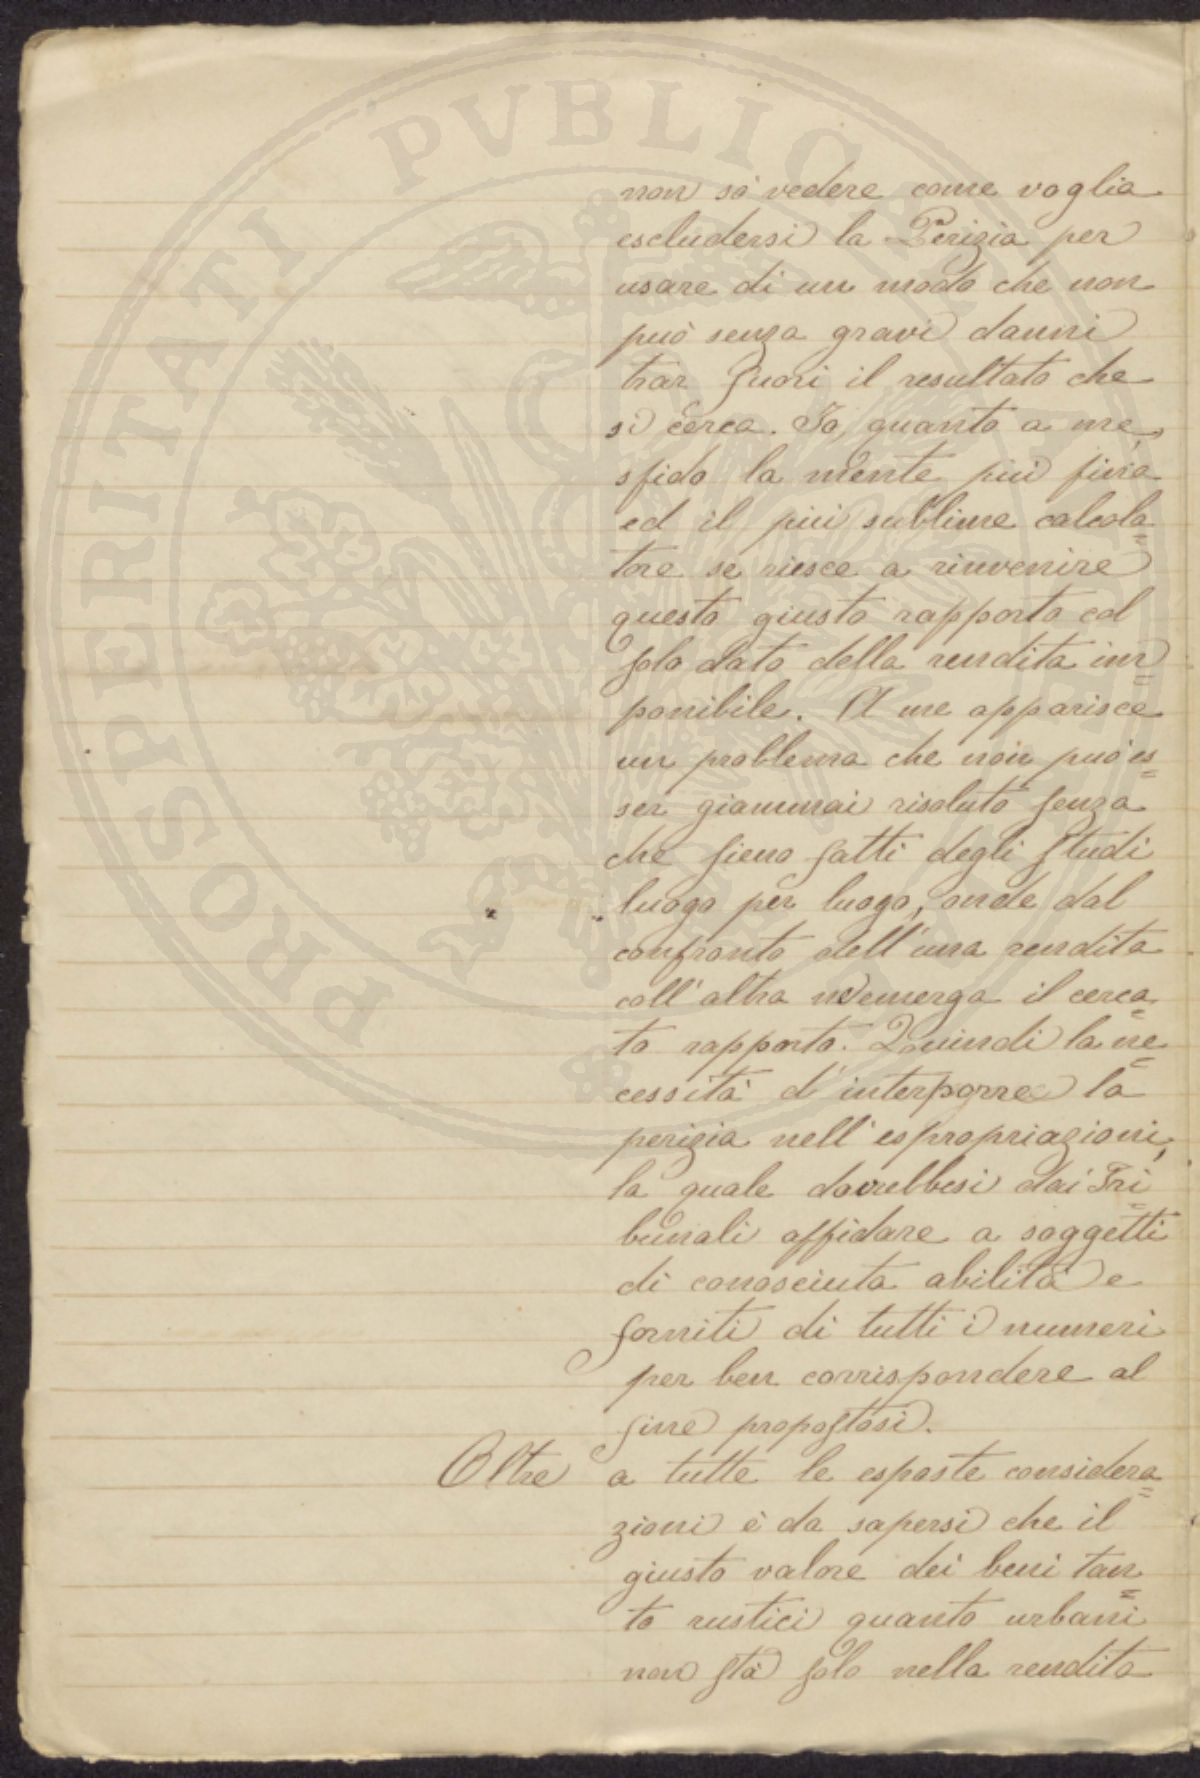 non sò vedere come voglia
escludersi la Perizia per
usare di un modo che non
può senza gravi danni
trar fuori il resultato che
si cerca. Io, quanto a me,
sfido la mente più fina
ed il più sublime calcola=
tore se riesce a rinvenire
questo giusto rapporto col
solo dato della rendita im=
ponibile. A me apparisce
un problema che non può es=
ser giammai risoluto senza
che sieno fatti degli studi
luogo per luogo, onde dal
confronto dell'una rendita
coll'altra ne emerga il cerca=
to rapporto. Quindi la ne=
cessità d'interporre la
perizia nell'espropriazioni,
la quale dovrebbesi dai Tri=
bunali affidare a soggetti
di conosciuta abilità e
forniti di tutti i numeri
per ben corrispondere al
fine propostosi.
Oltre a tutte le esposte considera=
zioni è da sapersi che il
giusto valore dei beni tan=
to rustici quanto urbani
non stà solo nella rendita
PROSPERITATI PVBLIC